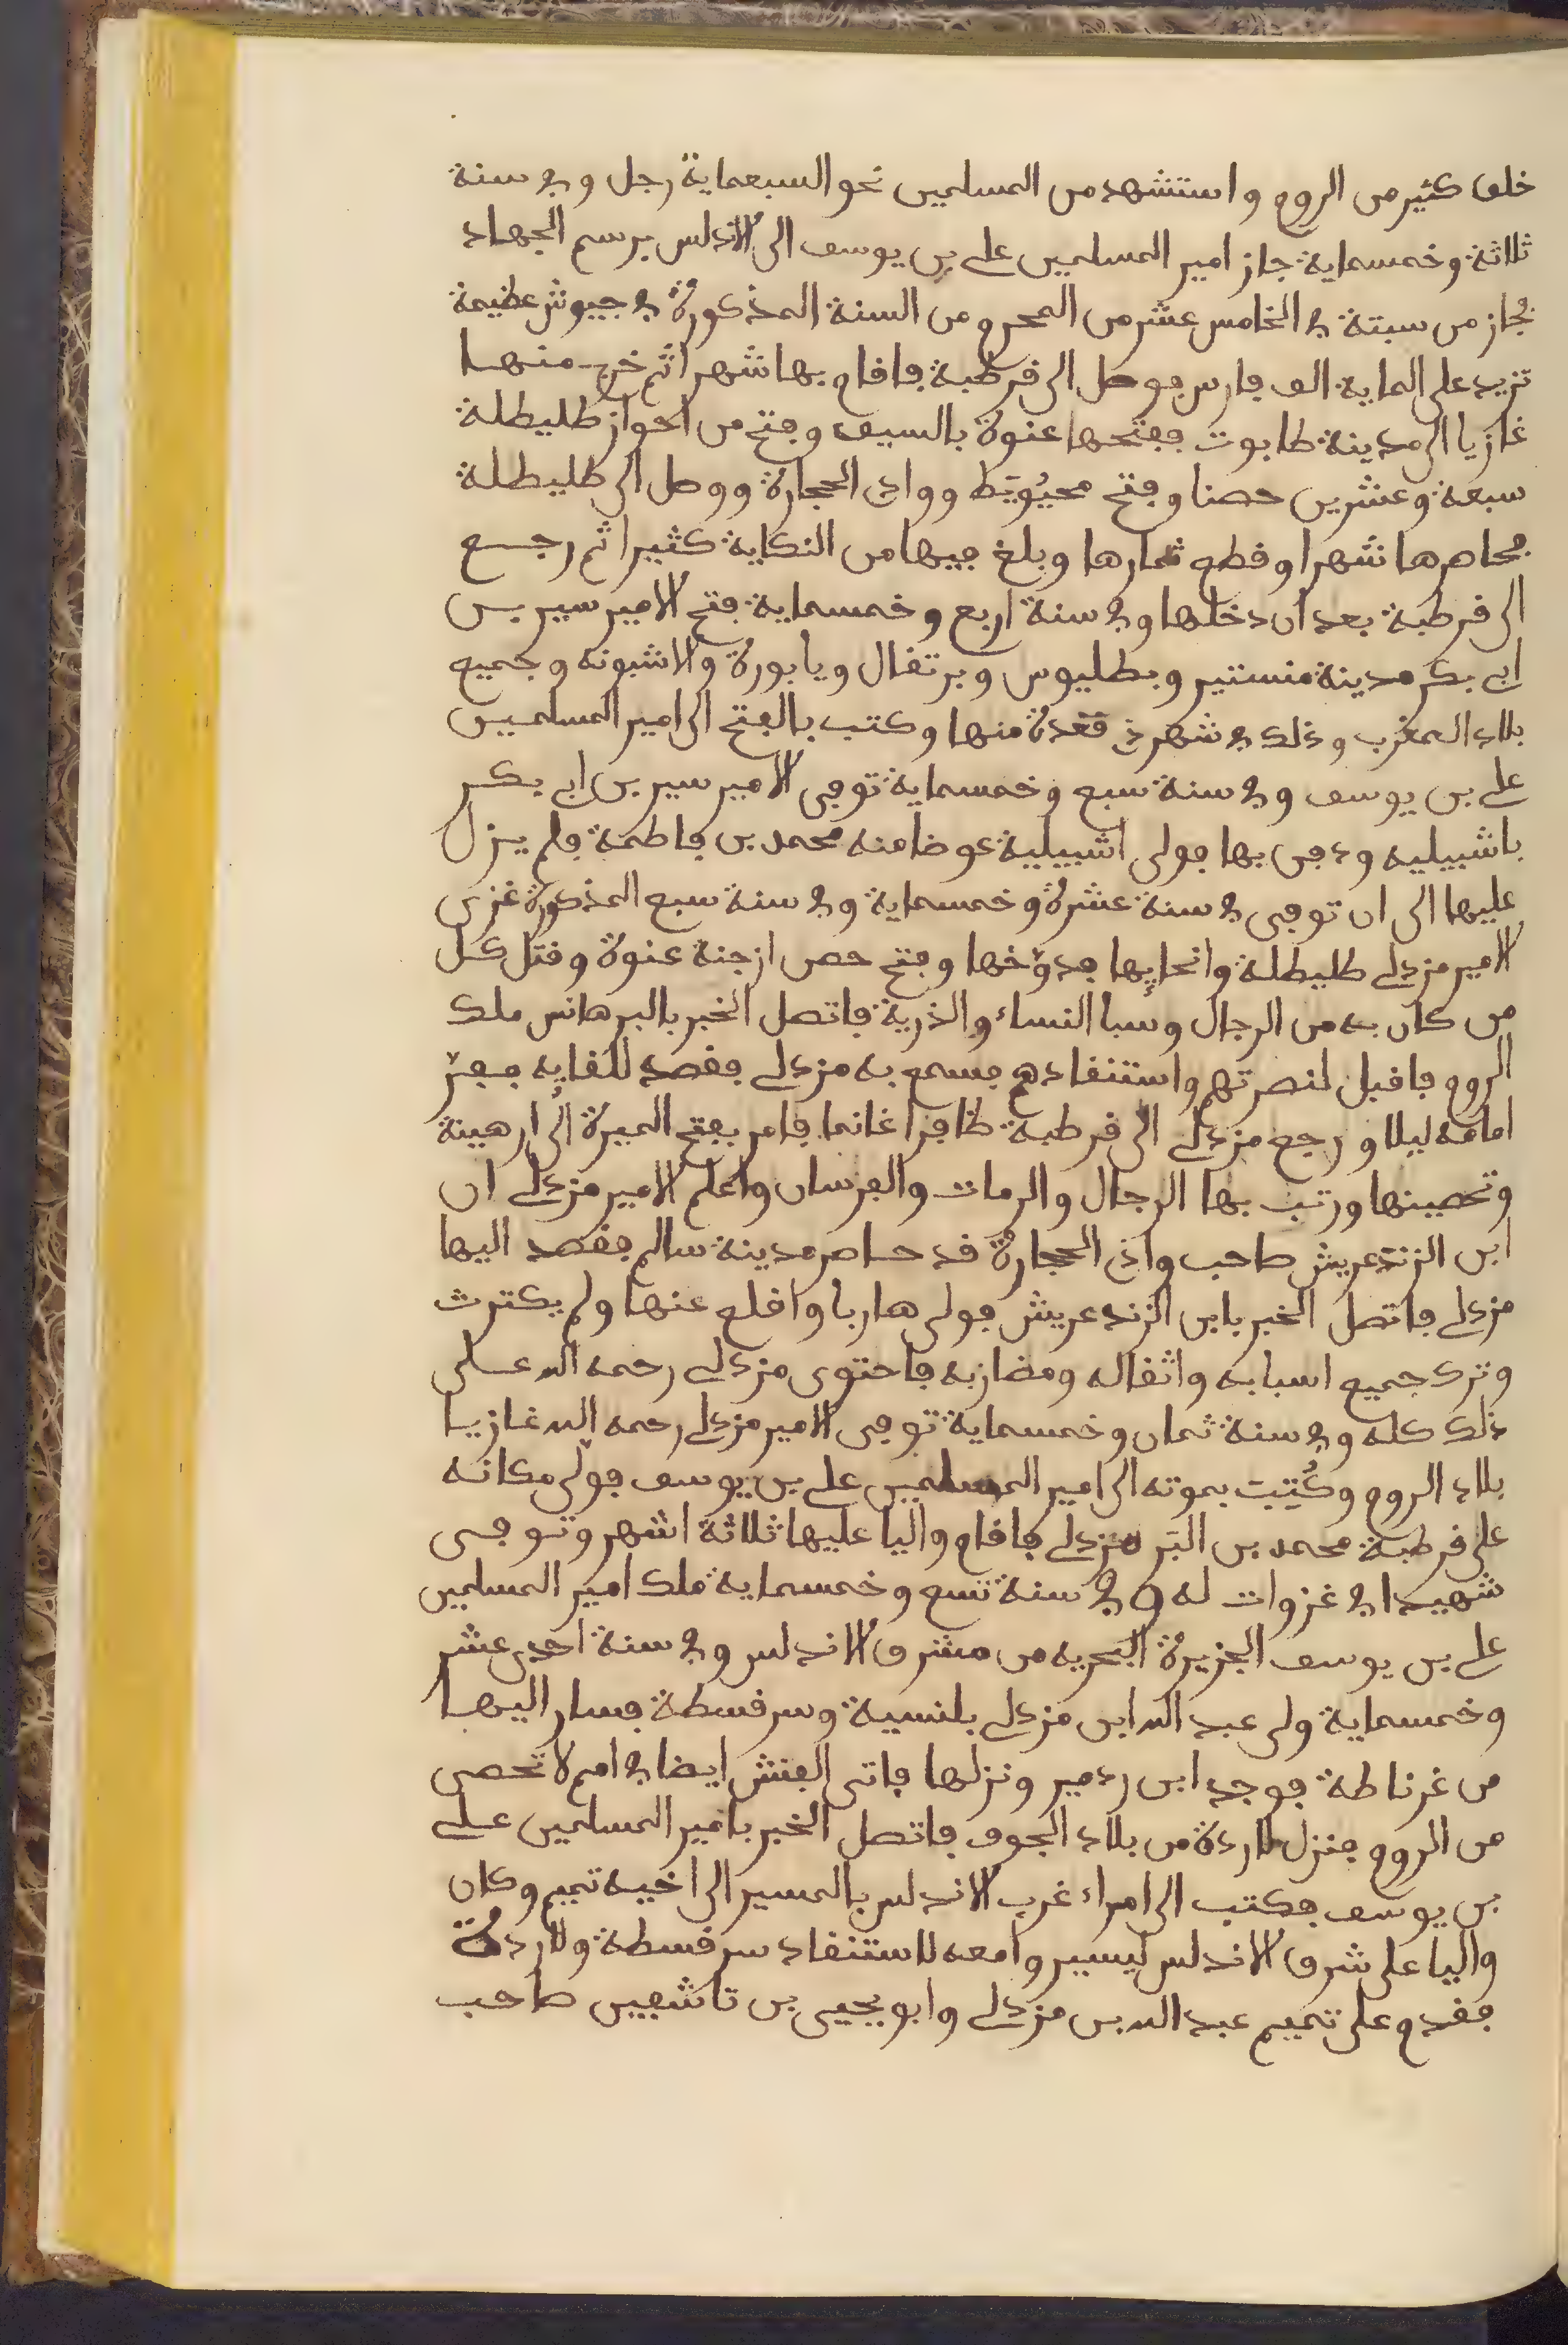 خلق كثير من الروم واستشهد من المسلمين نحو السبعماية رجل وفي سنة
ثلاثة وخمسماية جاز امير المسلمين علي بن يوسف الى الاندلس برسم الجهاد
فجاز من سبتة في الخامس عشر من المحرم من السنة المذكورة في جيوش عظيمة
تزيد على الماية الف فارس فوصل الى قرطبة فاقام بها شهرا ثم خرج منها
غازيا الى مدينة طابوت ففتحها عنوة بالسيف وفتح من احواز طليطلة
سبعة وعشرين حصنا وفتح مجيُويَط ووادي الحجارة ووصل الى طليطلة
فحاصرها شهرا وقطع ثمارها وبلغ فيها من النكاية كثيرا ثم رجع
الى قرطبة بعد ان دخلها وفي سنة اربع وخمسماية فتح الامير سير بن
ابي بكر مدينة منستير وبطليوس وبرتقال ويابورة والاشبونه وجميع
بلاد المغرب وذلك في شهر ذي قعدة منها وكتب بالفتح الى امير المسلمين
علي بن يوسف وفي سنة سبع وخمسماية توفي الامير سير بن ابي بكر
باشبيليه ودفن بها فولى اشبيلية عوضا منه محمد بن فاطمة فلم يزل
عليها الى ان توفي في سنة عشرة وخمسماية وفي سنة سبع المذكورة غزى
الامير مزدلي طليطلة وانحايها فدوّخها وفتح حصن ارجنة عنوة وقتل كل
من كان به من الرجال وسبا النساء والذرية فاتصل الخبر بالبرهانس ملك
الروم فاقبل لنصرتهم واستنقادهم فسمع به مزدلي فقصد للقايه ففرّ
امامه ليلا ورجع مزدلي الى قرطبة ظافرا غانما فامر بفتح الميرة الى ارهينة
وتحصينها ورتب بها الرجال والرمات والفرسان واعلم الامير مزدلي ان
ابن الزندعريش صاحب وادي الحجارة قد حاصر مدينة سالم فقصد اليها
مزدلي فاتصل الخبر بابن الزندعريش فولى هاربا واقلع عنها ولم يكترث
وترك جميع اسبابه واثقاله ومضاربه فاحتوى مزدلي رحمه الله على
ذلك كله وفي سنة ثمان وخمسماية توفي الامير مزدلي رحمه الله غازيا
بلاد الروم وكُتِبت بموته الى امير المسلمين علي بن يوسف فولى مكانه
على قرطبة محمد بن البَر مزدلي فاقام واليا عليها ثلاثة اشهر وتوفي
شهيدا في غزوات له وفي سنة تسع وخمسماية ملك امير المسلمين
علي بن يوسف الجزيرة البحريه من مشرق الاندلس وفي سنة احدى عشر
وخمسماية ولى عبد الله ابن مزدلي بلنسية وسرقسطة فسار اليها
من غرناطة فوجد ابن ردمير ونزلها فاتى الفنش ايضا في امم لا تحصى
من الروم فنزل لاردة من بلاد الجوف فاتصل الخبر بامير المسلمين علي
بن يوسف فكتب الى امراء غرب الاندلس بالمسير الى اخيه تميم وكان
واليا على شرق الاندلس ليسيروا معه لاستنقاد سرقسطة ولاردة
فقدم على تميم عبد الله بن مزدلي وابو يحيى بن تاشفين صاحب